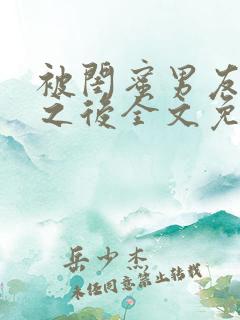 被閨蜜男友
之後全文免
岳少杰
未经同意禁止转载